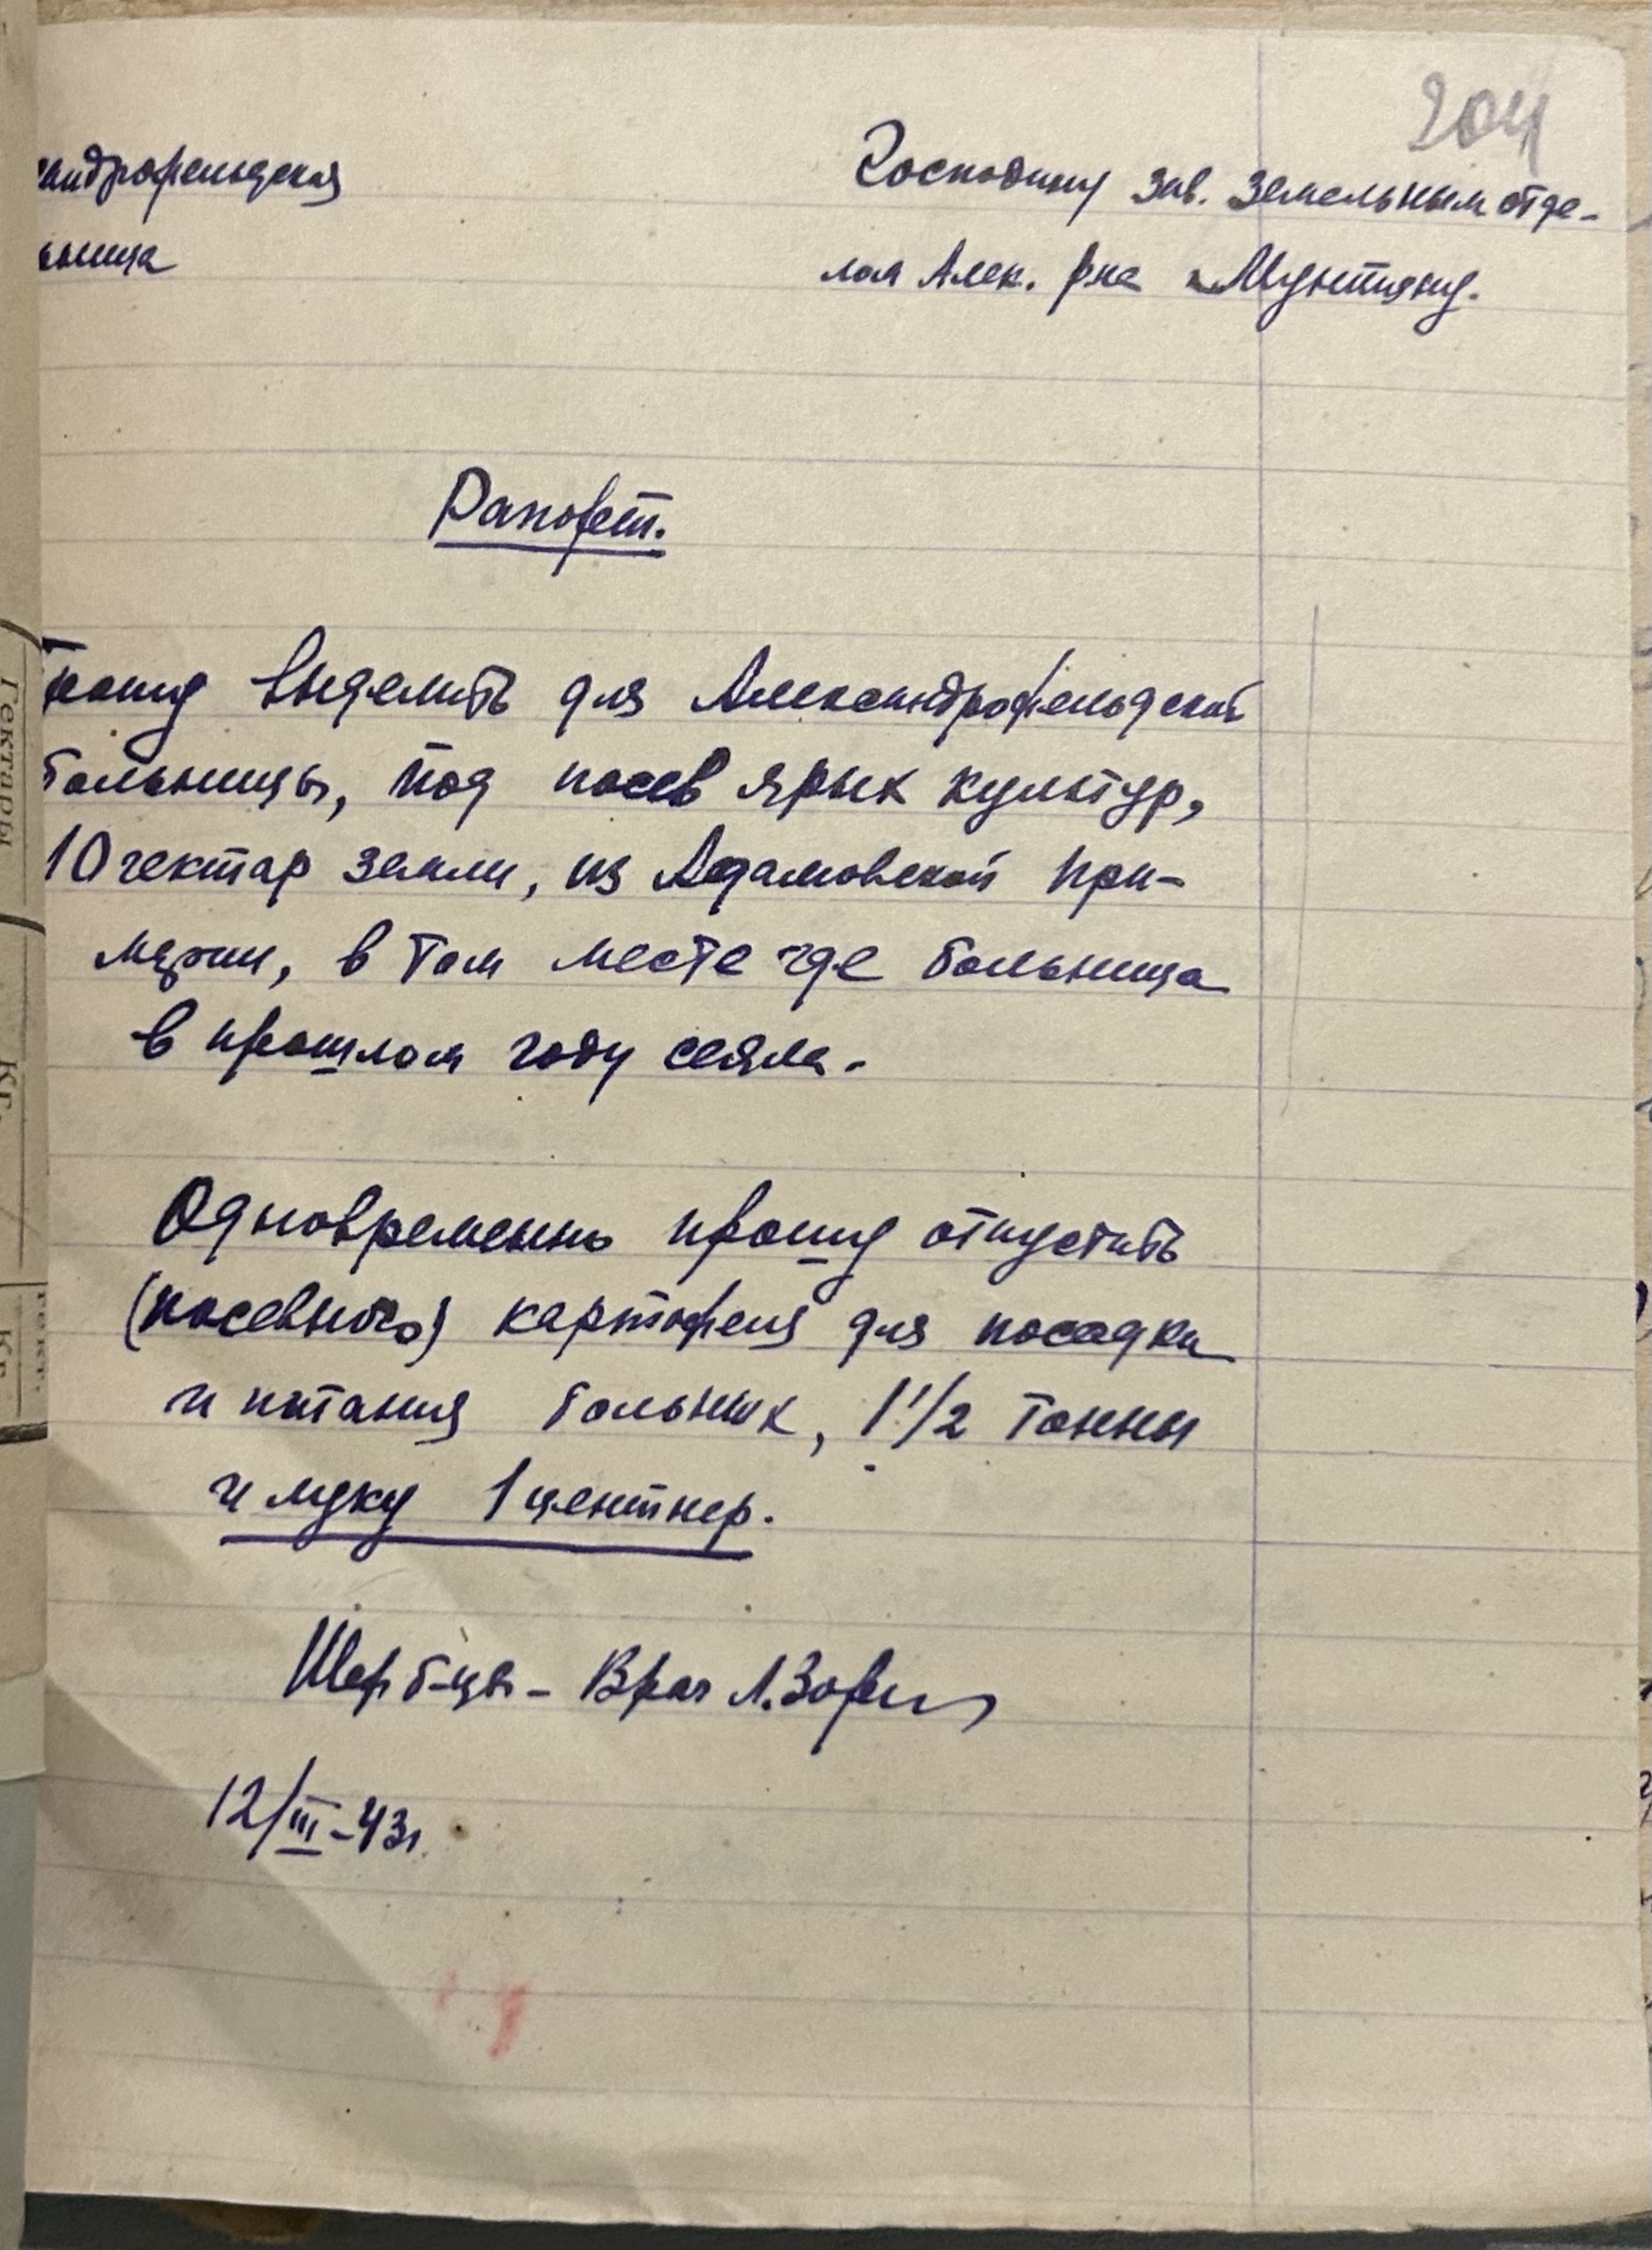 204
андрофельдская
ьница
Господину зав. земельным отде-
лом Алек. р-на Мунтяну.
Рапорт.
Прошу выделить для Александрофельдской
больницы, под посев ярых культур,
10 гектар земли, из Адамовской при-
мэрии, в том месте где больница
в прошлом году сеяла.
Одновременно прошу отпустить
(посевного) картофеля для посадки
и питания больных, 1 1/2 тонны
и муку 1 центнер.
Шеф б-цы - Врач Л.
12/III-43г.
Гектары
Кг.
Гект.
Кг.